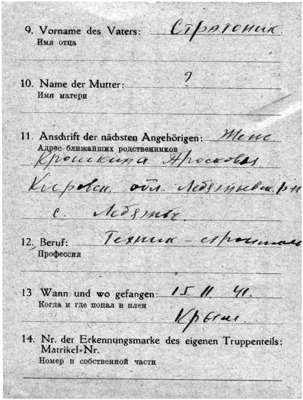 9. Vorname des Vaters: Стратоник
Имя отца
10. Name der Mutter: ?
Имя матери
11. Anschrift der nächsten Angehörigen: Жена
Адрес ближайших родственников
Кировск. обл. Лебяжьевск. р-н
с. Лебяжье
12. Beruf: Техник-строитель
Профессия
13 Wann und wo gefangen: 15 11 41.
Когда и где попал в плен
Крым
14. Nr. der Erkennungsmarke des eigenen Truppenteils:
Matrikel-Nr.
Номер и собственной части